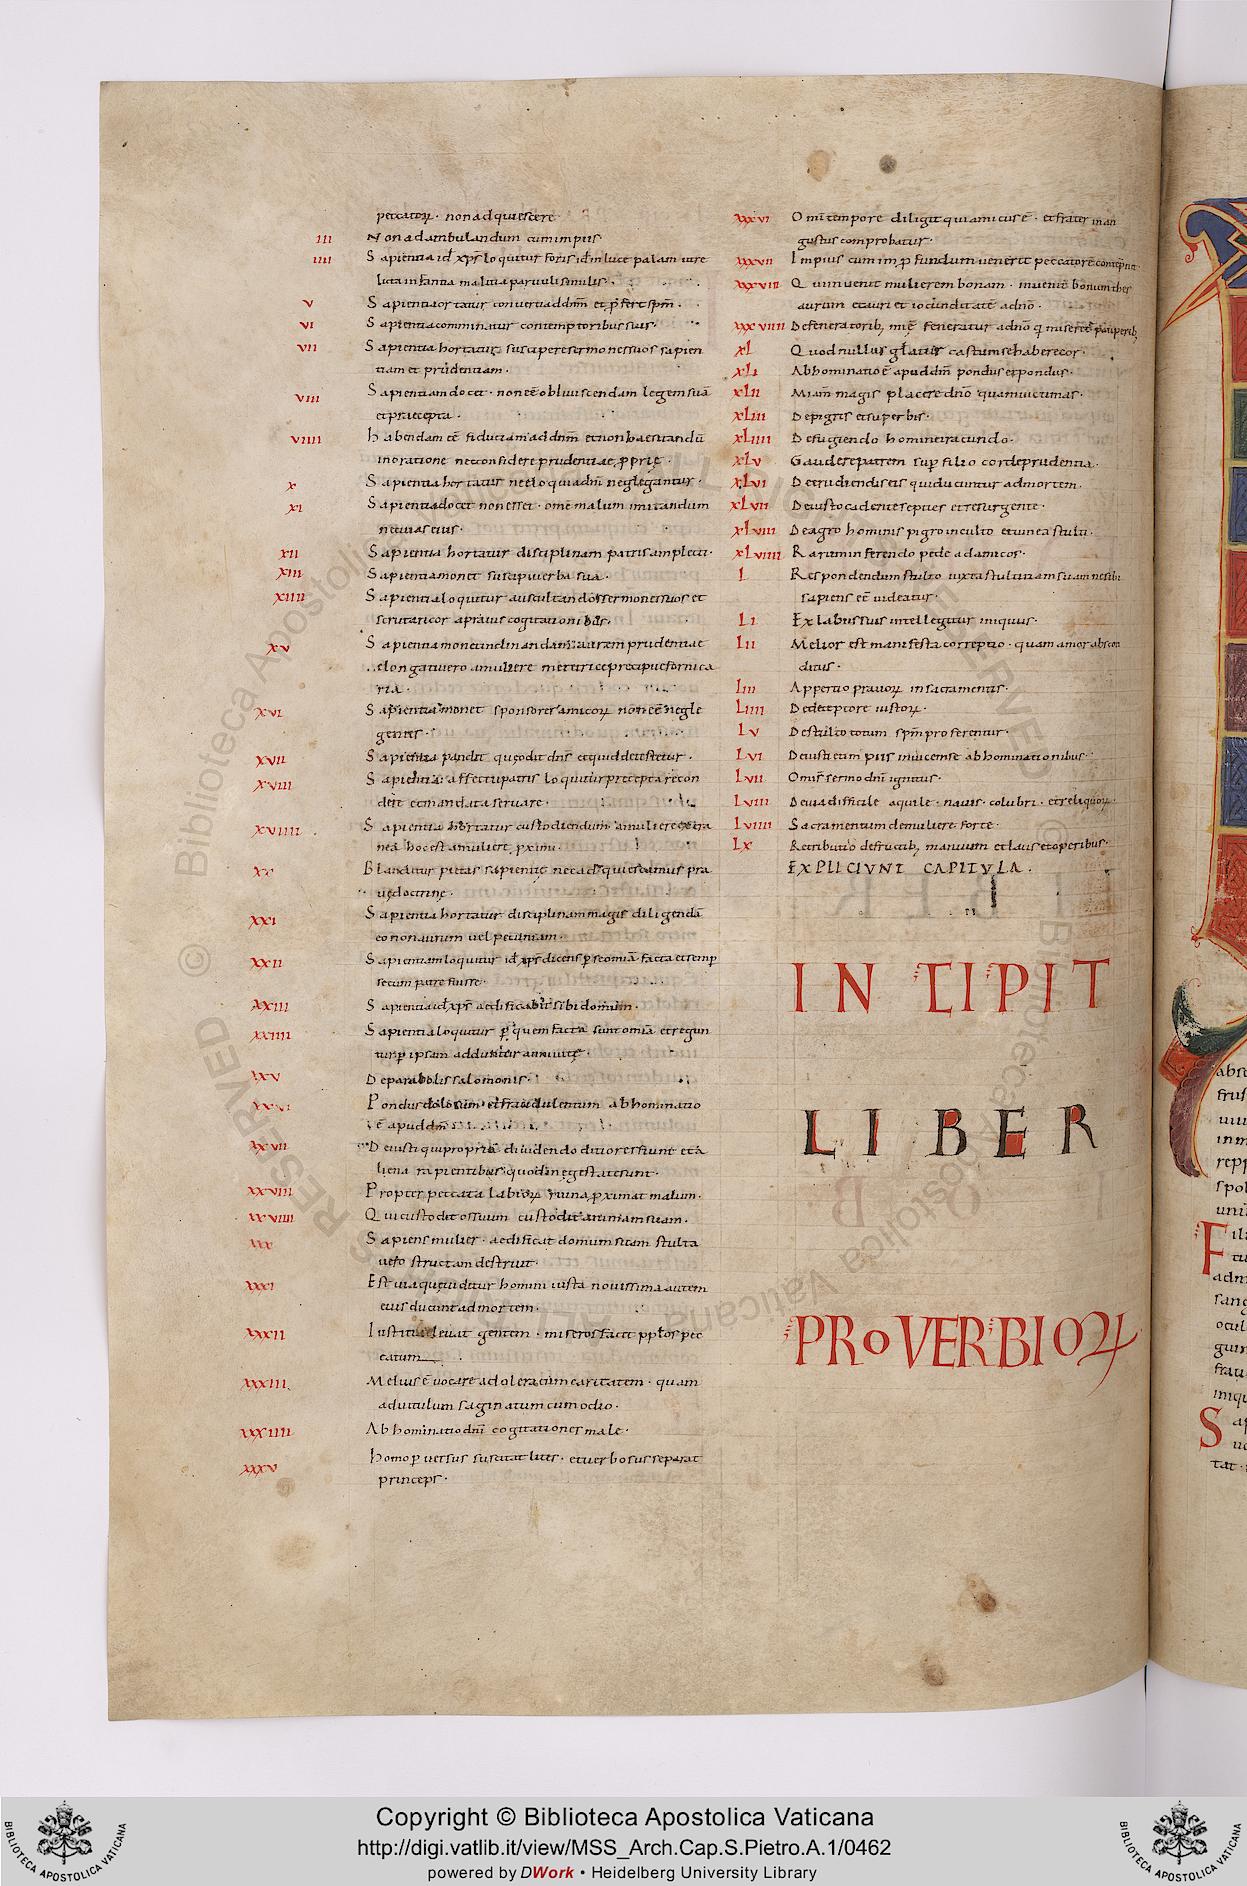 peccatoꝝ · non adquiescere ·
III Non ad ambulandum cum impiis
IIII Sapientia id xp̄s loquitur foris id in luce palam utre
licta infantia malitia parvuli similis ·
V Sapientia ortatur convertiad dn̄m et p̄fert sp̄m ·
VI Sapientia comminatur contemptoribus suis ·
VII Sapientia hortatur suscipere sermones suos sapien
tiam et prudentiam ·
VIII Sapientiam docet · non eē obliviscendam legem suā
et precepta ·
VIIII Habendam eē fiduciam ad dn̄m et non haesitandū
in oratione nec confidere prudentiae ꝓprię ·
X Sapientia hortatur ne eloquia dn̄i neglegantur ·
XI Sapientia docet non esset · ome malum imitandum
nec vias eius ·
XII Sapientia hortatur disciplinam patris amplecti ·
XIII Sapientia monet suscipi verba sua ·
XIIII Sapientia loquitur auscultandos sermones suos et
scrutaricor a pravis cogitationibus ·
XV Sapientia monet inclinandam aurem prudentiae
elongati vero a muliere meretrice precipue fornica
ria ·
XVI Sapientia monet sponsores amicoꝝ non eē negle
gentes ·
XVII Sapientia pandit quę odit dn̄s et quid detestetur ·
XVIII Sapientia affectu patris loquitur precepta recon
deret mandata servare ·
XVIIII Sapientia hortatur custodiendum a muliere extra
nea hoc est a muliere proximi ·
XX Blanditur pietas sapientię nec adquiescamus pra
vę doctrinę ·
XXI Sapientia hortatur disciplinam magis diligendā
eo non aurum vel pecuniam ·
XXII Sapientiam loquitur id xp̄s dicens ꝑ se omia facta et semp
secum patre fuisse ·
XXIII Sapientia id xp̄s aedificabit sibi domum ·
XXIIII Sapientia loquitur ꝑ quem facta sunt omia et regun
tur ꝑ ipsam adduntur anni vitę ·
XXV De parabolis salomonis ·
XXVI Pondus dolosum et fraudulentum abhominatio
ē apud dm̄
XXVII De iusti qui propria dividendo ditiores fiunt et a
liena rapientibus quod in egestate sunt ·
XXVIII Propter peccata labioꝝ ruina ꝓximat malum ·
XXVIIII Qui custodit os suum custodit animam suam ·
XXX Sapiens mulier · aedificat domum suam stulta
vero structam destruit ·
XXXI Est via quę videtur homini iusta novissima autem
eius ducunt ad mortem ·
XXXII Iustitia levat gentem · miseros facit ppłos pec
catum
XXXIII Melius ē vocare ad olera cum caritatem · quam
ad vitulum saginatum cum odio ·
XXXIIII Abhominatio dn̄i cogitationes male ·
XXXV Homo ꝑversus suscitat lites · et verbosus separat
princeps ·
XXXVI Omi tempore diligit qui amicus ē · et frater in an
gustiis comprobatur ·
XXXVII Impius cum in ꝓfundum venerit peccatorē contēpnit
XXXVIII Qui invenit mulierem bonam · invenit bonum thes
aurum etauri et iocunditatē a dn̄o ·
XXXVIIII De feneratorib; miē feneratur a dn̄o q̄ miseretē pauperib;
XL Quod nullus głatur castum se habere cor ·
XLI Abhominatio ē apud dm̄ pondus et pondus ·
XLII Miam magis placere dn̄o quam victimas ·
XLIII De pigris et superbis ·
XLIIII De fugiendo homine iracundo ·
XLV Gaudere patrem sup filio corde prudentia ·
XLVI De erudiendis eis qui ducuntur ad mortem ·
XLVII De iusto cadente septies et resurgente ·
XLVIII De agro hominis pigro inculto et vinea stulti ·
XLVIIII Rarum inferendo pede ad amicos ·
L Respondendum stulto iuxta stultitiam suam ne sibi
sapiens eē videatur ·
LI Ex labiis suis intellegitur iniquus ·
LII Melior est manifesta correptio · quam amor abscon
ditus ·
LIII Appertio pravoꝝ in sacramentis ·
LIIII De deceptore iustoꝝ ·
LV De stulto totum sp̄m proferentur ·
LVI De iusti etimpiis invicem se abhominationibus ·
LVII Omis sermo dn̄i ignitus ·
LVIII De via difficile aquile · navis · colubri · et reliquoꝝ ·
LVIIII Sacramentum de muliere forte ·
LX Retributio de fructib; manuum et laus et operibus ·
EXPLICIUNT CAPITULA ·
INCIPIT
LIBER
PROVERBIOꝝ
Copyright © Biblioteca Apostolica Vaticana
http://digi.vatlib.it/view/MSS_Arch.Cap.S.Pietro.A.1/0462
powered by DWork • Heidelberg University Library